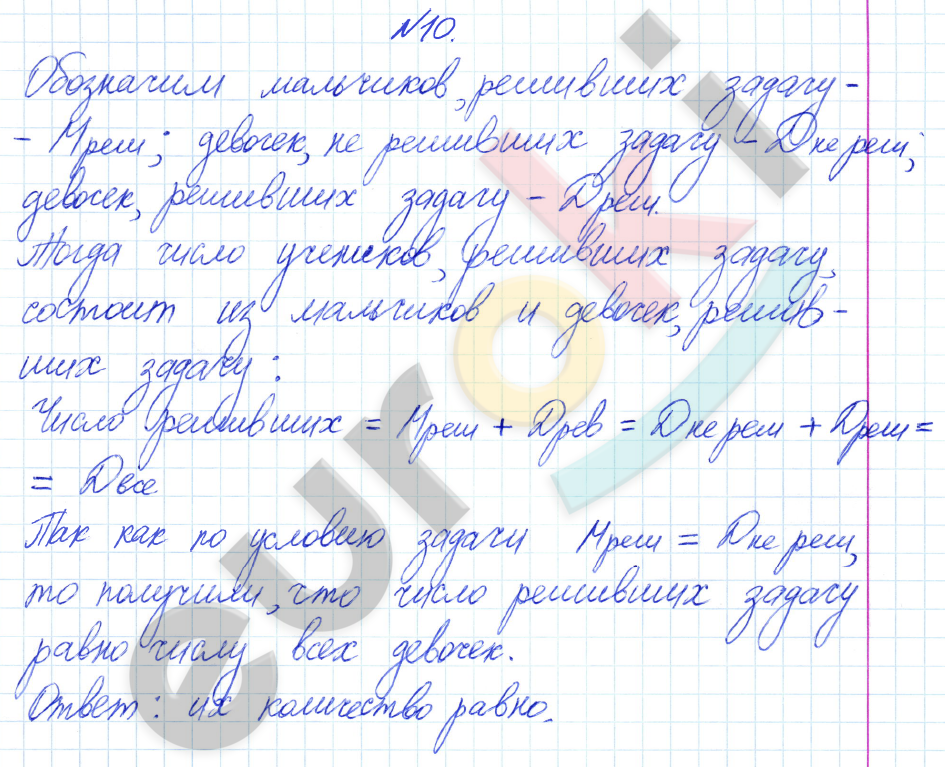 №10.
Обозначим мальчиков, решивших задачу -
- Мреш; девочек, не решивших задачу - Дне реш;
девочек, решивших задачу - Дреш.
Тогда число учеников, решивших задачу,
состоит из мальчиков и девочек, решив-
ших задачу:
Число решивших = Мреш + Древ = Дне реш + Дреш =
= Двсе
Так как по условию задачи Мреш = Дне реш,
то получили, что число решивших задачу
равно числу всех девочек.
Ответ: их количество равно.
euroki